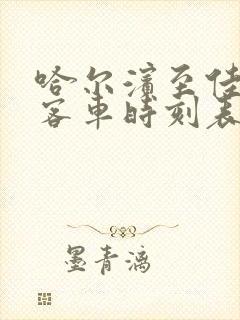 哈尔滨至佳
客车时刻表
墨青漓